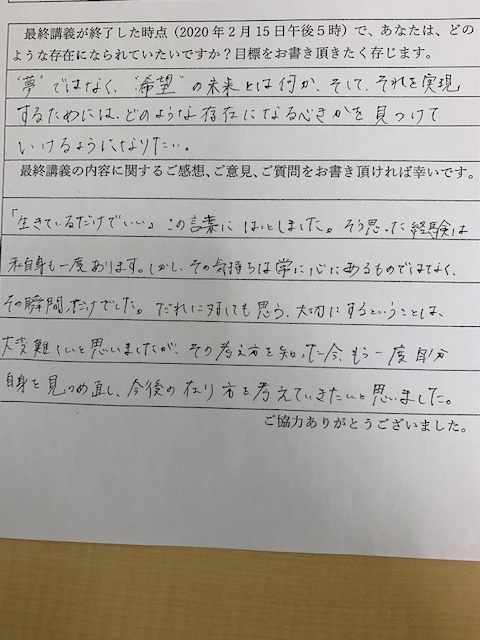 最終講義が終了した時点（2020年2月15日午後5時）で、あなたは、どの
ような存在になられていたいですか？目標をお書き頂きたく存じます。
"夢"ではなく、"希望"の未来とは何か、そして、それを実現
するためには、どのような存在になるべきかを見つけて
いけるようになりたい。
最終講義の内容に関するご感想、ご意見、ご質問をお書き頂ければ幸いです。
「生きているだけでいい」この言葉にはっとしました。そう思った経験は
私自身も一度あります。しかし、その気持ちは常に心にあるものではなく、
その瞬間だけでした。だれに対しても思う、大切にするということは、
大変難しいと思いましたが、その考え方を知った今、もう一度自分
自身を見つめ直し、今後の在り方を考えていきたいと思いました。
ご協力ありがとうございました。